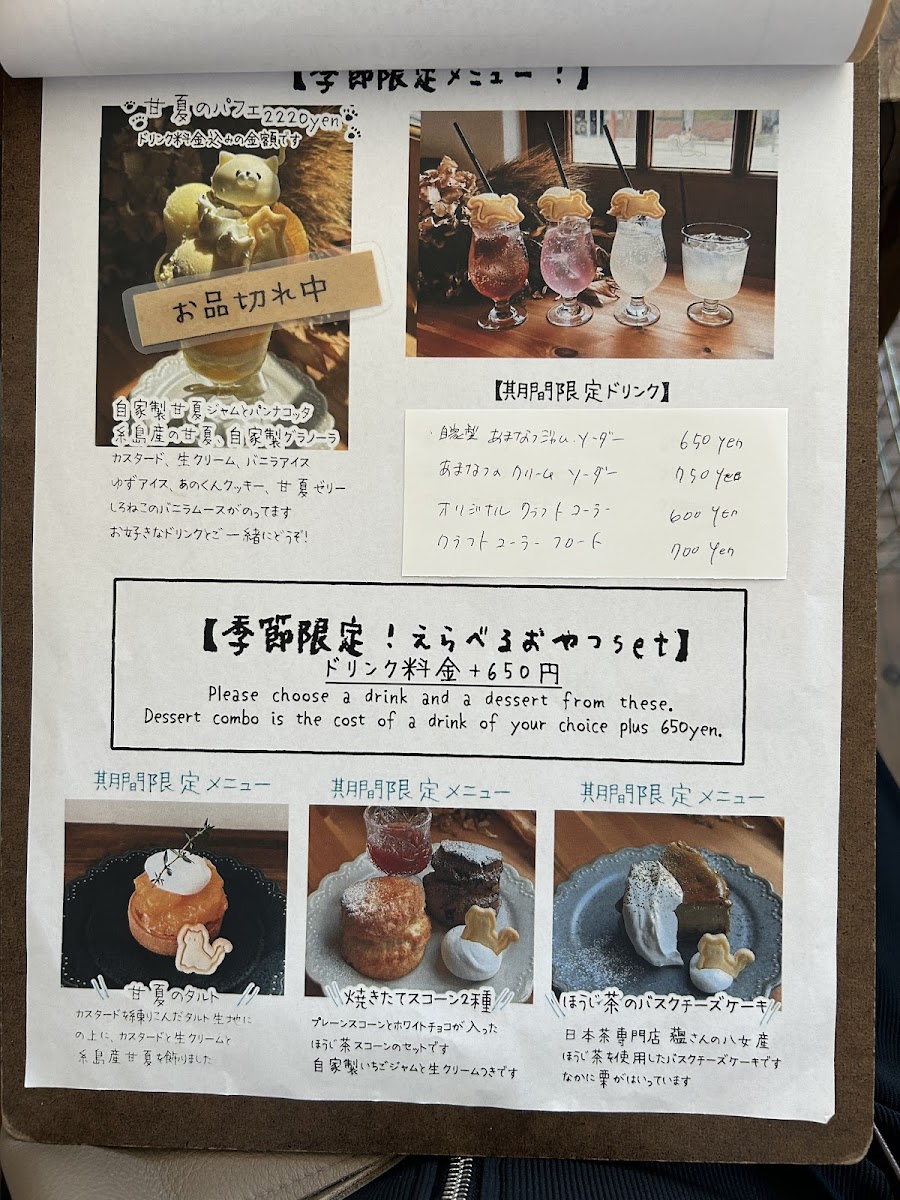 【季節限定メニュー！】
甘夏のパフェ
2220yen
ドリンク料金込みの金額です
お品切れ中
自家製甘夏ジャムとパンナコッタ
糸島産の甘夏、自家製グラノーラ
カスタード、生クリーム、バニラアイス
ゆずアイス、あのくんクッキー、甘夏ゼリー
しろねこのバニラムースがのってます
お好きなドリンクとご一緒にどうぞ！
【期間限定ドリンク】
・自家製 あまなつジャム ソーダー 650yen
あまなつの クリーム ソーダー 750yen
オリジナル クラフト コーラー 600yen
クラフト コーラー フロート 700yen
【季節限定！えらべるおやつset】
ドリンク料金+650円
Please choose a drink and a dessert from these.
Dessert combo is the cost of a drink of your choice plus 650yen.
期間限定メニュー
甘夏のタルト
カスタードを練りこんだタルト生地に
の上に、カスタードと生クリームと
糸島産甘夏を飾りました
期間限定メニュー
焼きたてスコーン2種
プレーンスコーンとホワイトチョコが入った
ほうじ茶スコーンのセットです
自家製いちごジャムと生クリームつきです
期間限定メニュー
ほうじ茶のバスクチーズケーキ
日本茶専門店 さんの八女産
ほうじ茶を使用したバスクチーズケーキです
なかに栗がはいっています